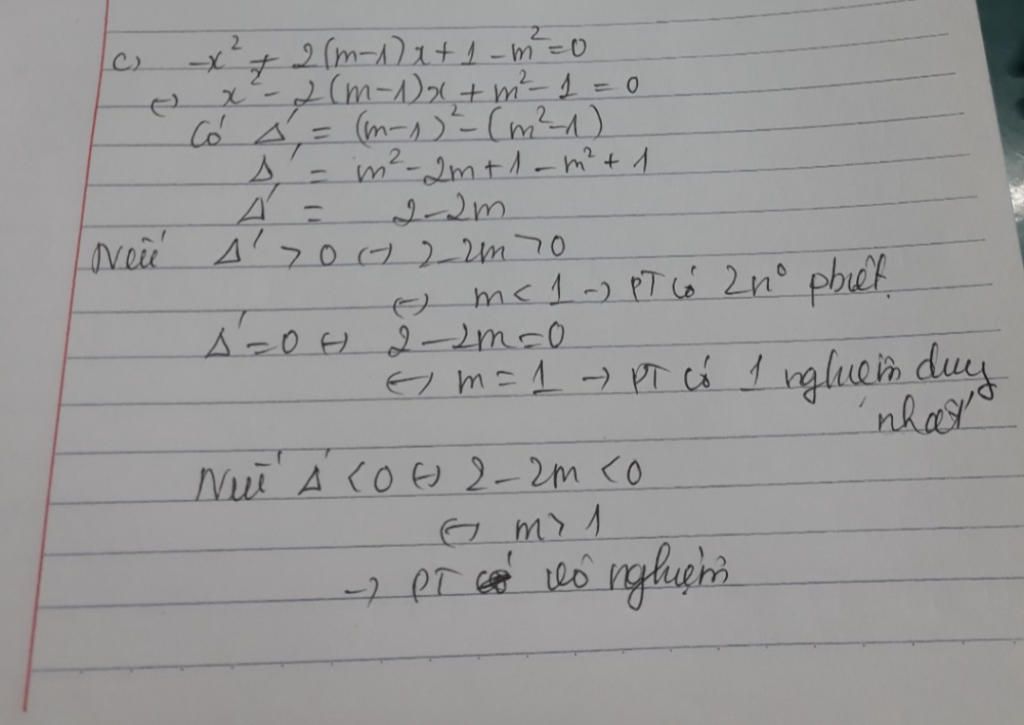 c) -x² + 2(m-1)x + 1 - m² = 0
⇔ x² - 2(m-1)x + m² - 1 = 0
Có Δ' = (m-1)² - (m²-1)
Δ' = m² - 2m + 1 - m² + 1
Δ' = 2 - 2m
Nếu Δ' > 0 ⇔ 2 - 2m > 0
⇔ m < 1 → PT có 2 n° pbiệt.
Δ' = 0 ⇔ 2 - 2m = 0
⇔ m = 1 → PT có 1 nghiệm duy
nhất
Nếu Δ' < 0 ⇔ 2 - 2m < 0
⇔ m > 1
→ PT vô nghiệm